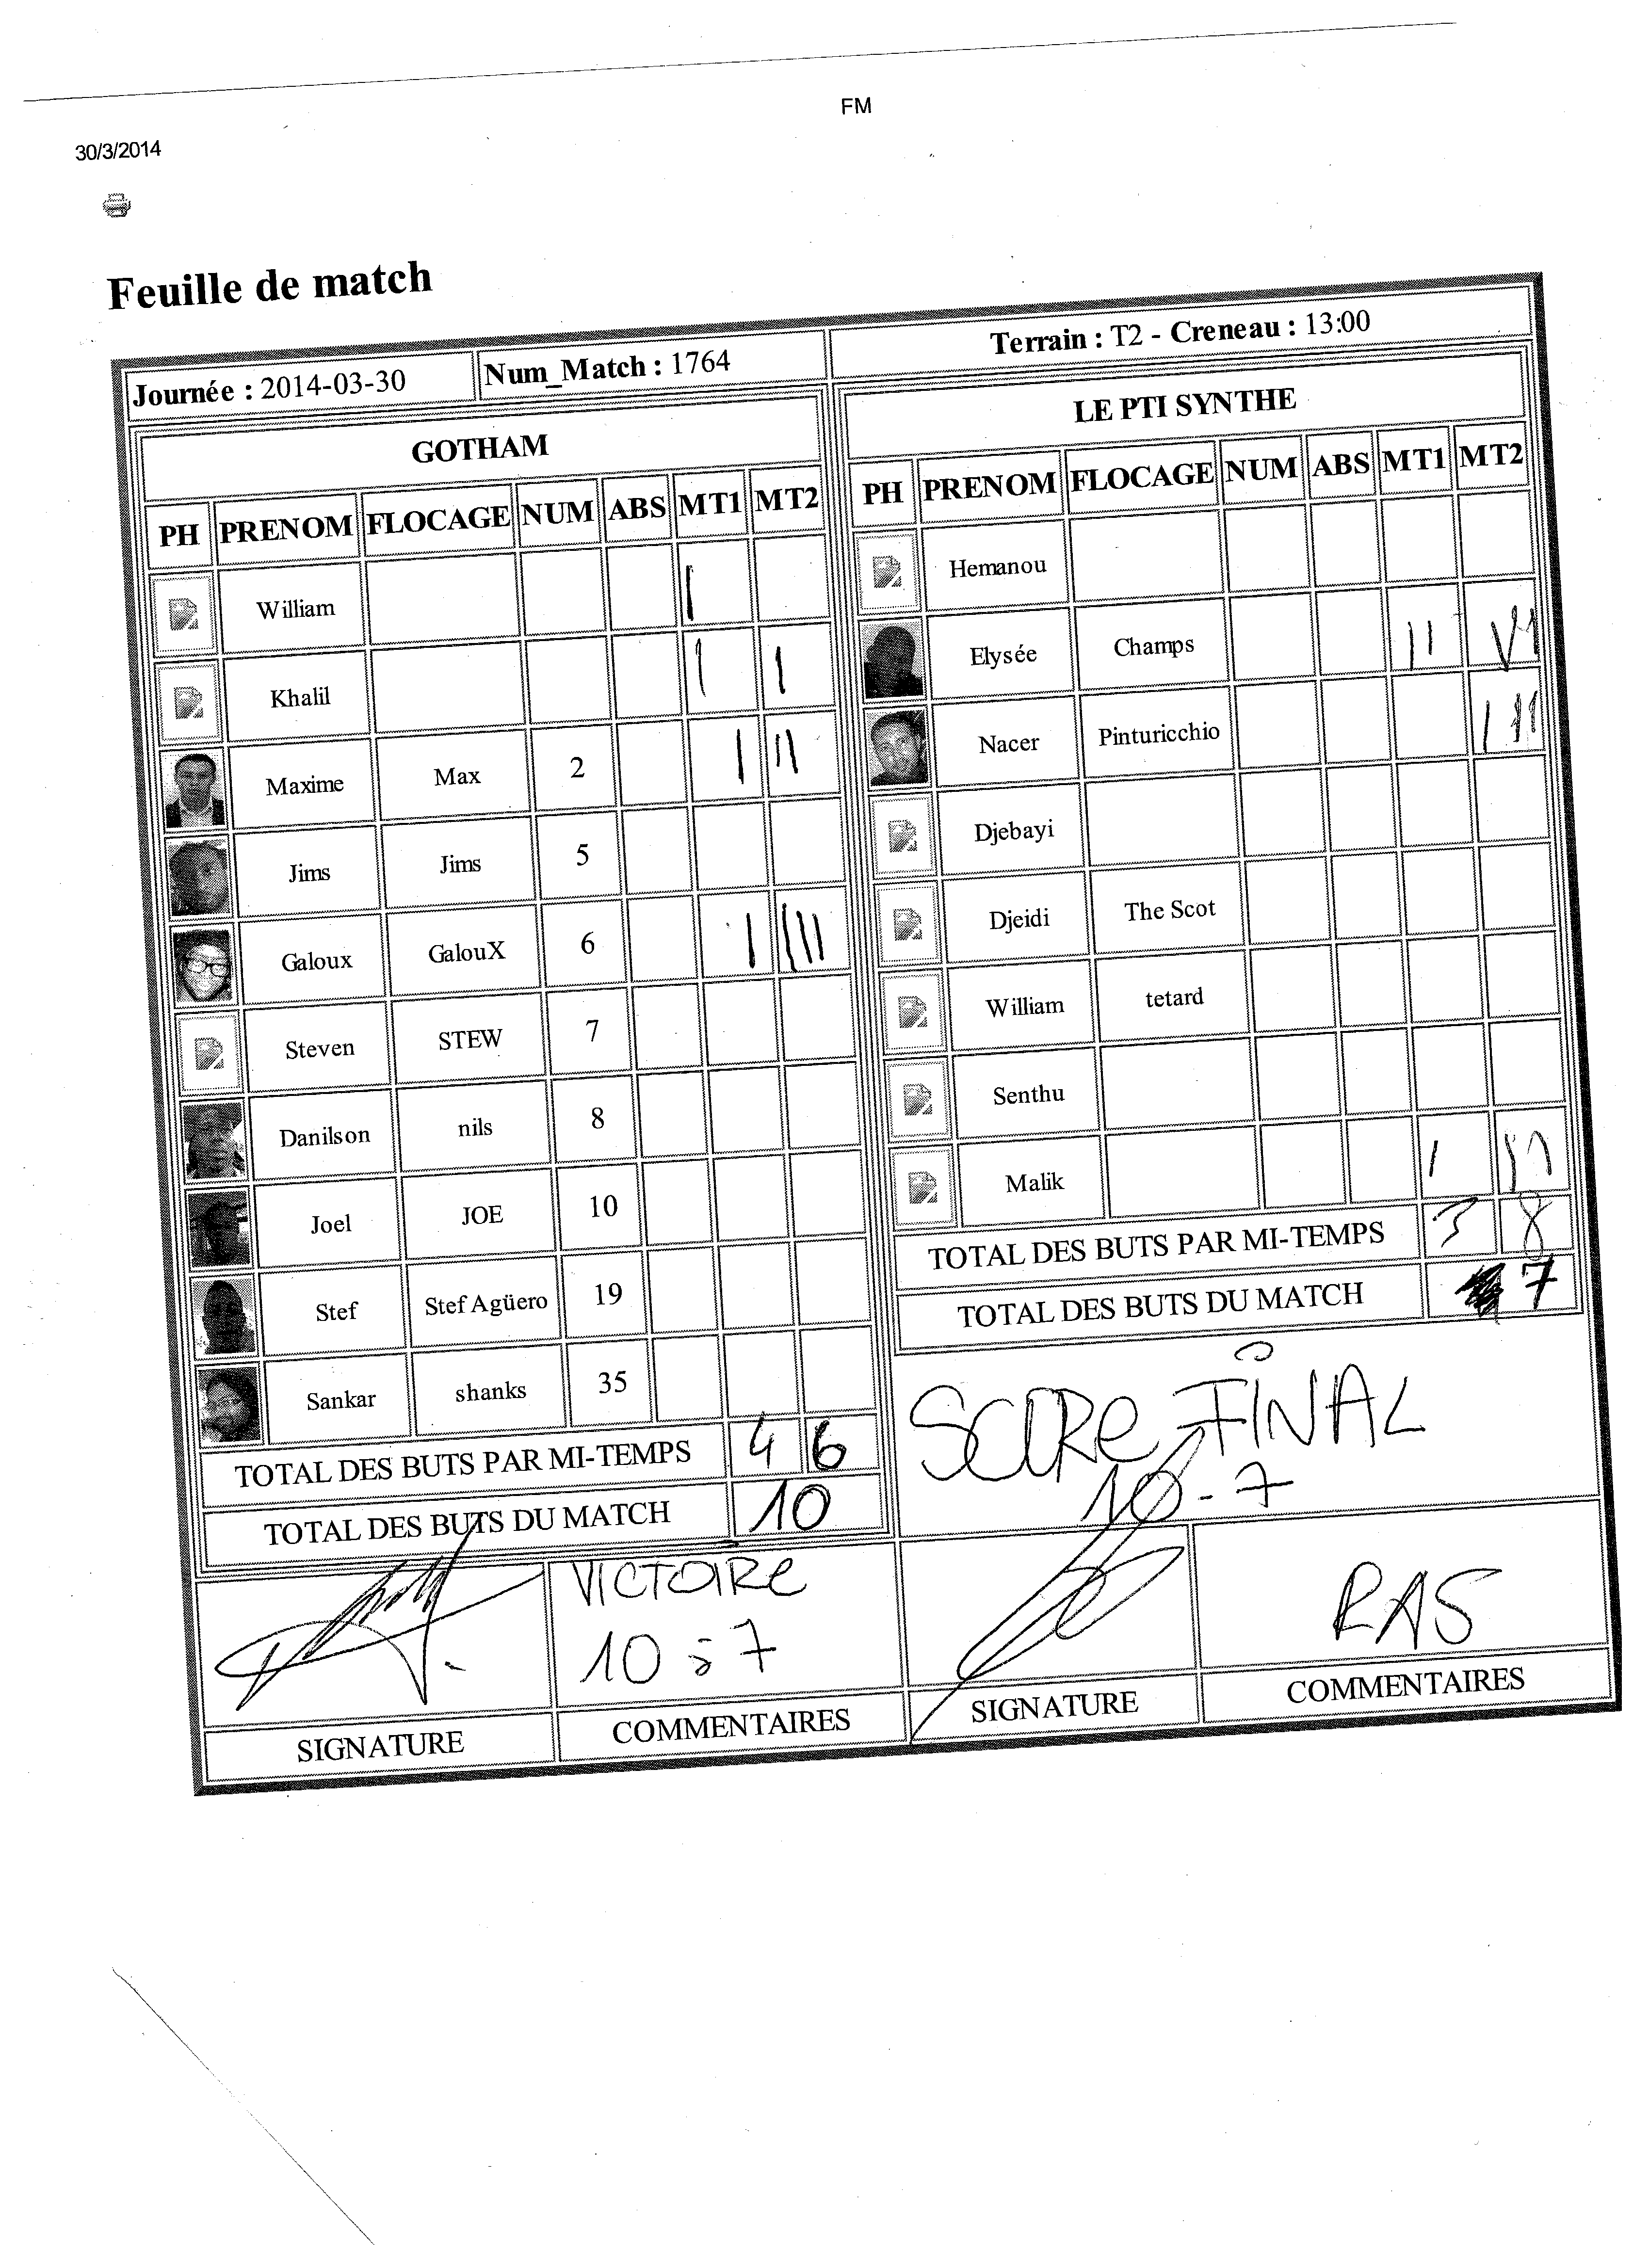 FM
30/3/2014
Feuille de match
Journée : 2014-03-30 Num_Match : 1764 Terrain : T2 - Creneau : 13:00
GOTHAM
PH PRENOM FLOCAGE NUM ABS MT1 MT2
William |
Khalil | |
Maxime Max 2 | ||
Jims Jims 5
Galoux GalouX 6 | ||||
Steven STEW 7
Danilson nils 8
Joel JOE 10
Stef Stef Agüero 19
Sankar shanks 35
TOTAL DES BUTS PAR MI-TEMPS 4 6
TOTAL DES BUTS DU MATCH 10
LE PTI SYNTHE
PH PRENOM FLOCAGE NUM ABS MT1 MT2
Hemanou
Elysée Champs ||
Nacer Pinturicchio |||
Djebayi
Djeidi The Scot
William tetard
Senthu
Malik |
TOTAL DES BUTS PAR MI-TEMPS 3 8
TOTAL DES BUTS DU MATCH 7
SCORE FINAL
10 - 7
VICTOIRE
10 à 7
RAS
SIGNATURE COMMENTAIRES SIGNATURE COMMENTAIRES